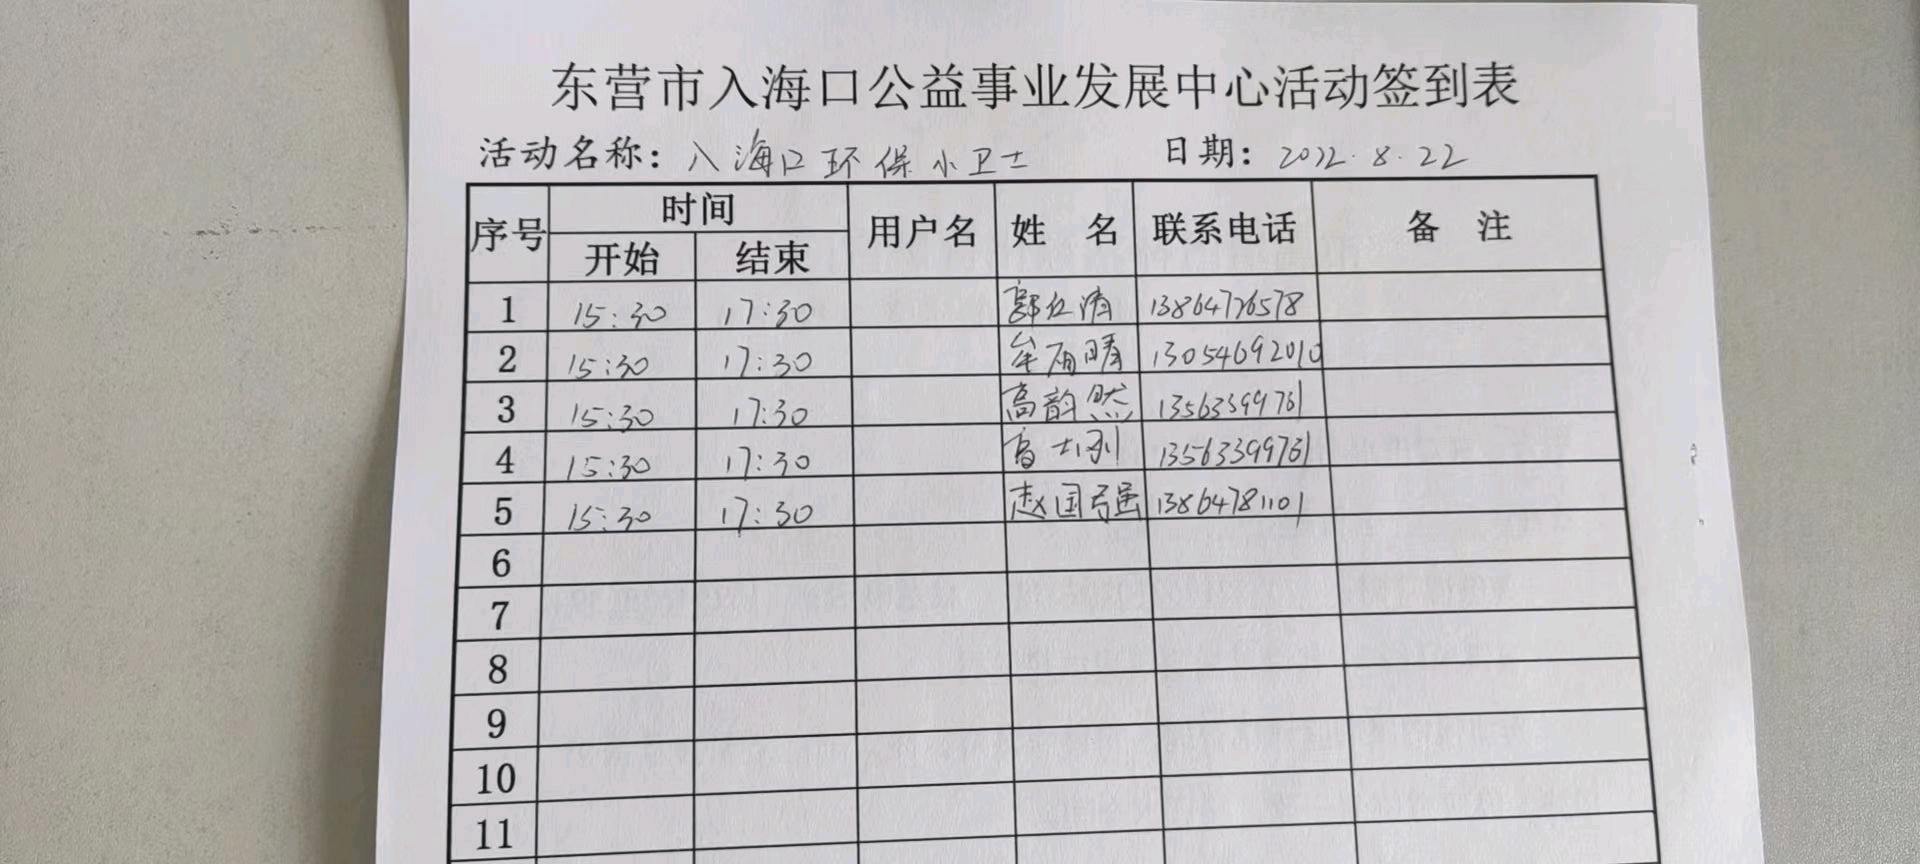 东营市入海口公益事业发展中心活动签到表
活动名称：入海口环保小卫士 日期：2022.8.22
序号 时间 用户名 姓 名 联系电话 备 注
开始 结束
1 15:30 17:30 13864726578
2 15:30 17:30 牟雨晴 13054692010
3 15:30 17:30 高韵然 13563399761
4 15:30 17:30 高士刚 13563399761
5 15:30 17:30 赵国强 13864781101
6
7
8
9
10
11